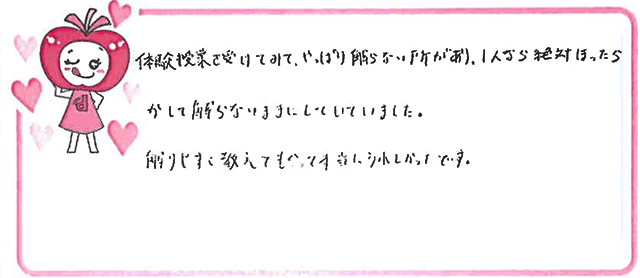 体験授業を受けてみて、やっぱり解らない所があり、1人なら絶対ほったら
かして解らないままにしていていました。
解りやすく教えてもらって本当にうれしかったです。